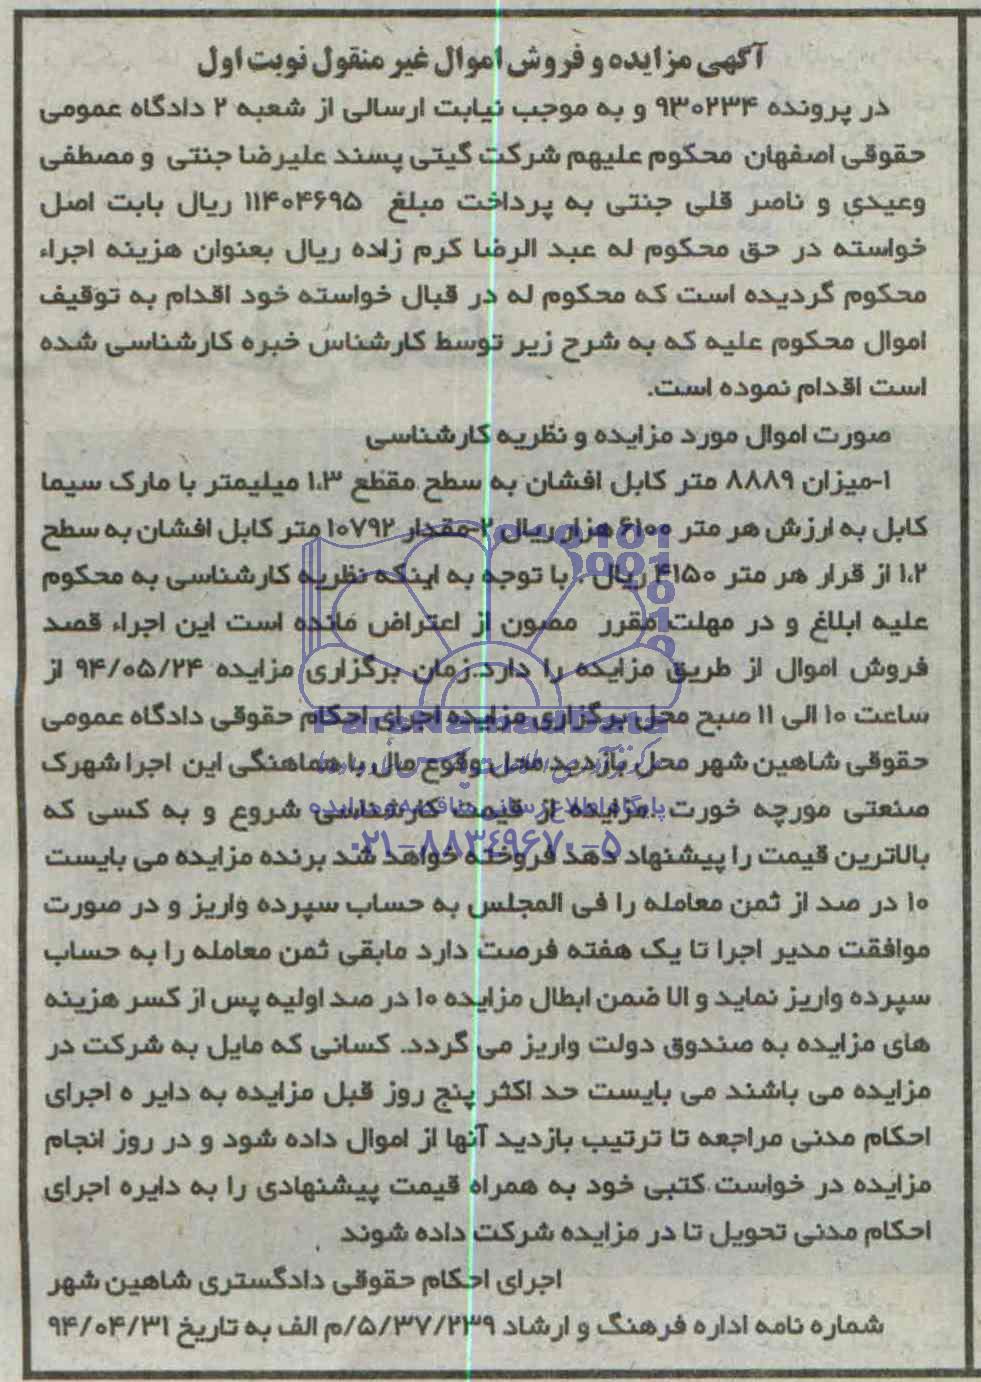 آگهی مزایده و فروش اموال غیر منقول نوبت اول
در پرونده ۹۳۰۲۳۴ و به موجب نیابت ارسالی از شعبه ۲ دادگاه عمومی
حقوقی اصفهان محکوم علیهم شرکت گیتی پسند علیرضا جنتی و مصطفی
وعیدی و ناصر قلی جنتی به پرداخت مبلغ ۱۱۴۰۴۶۹۵ ریال بابت اصل
خواسته در حق محکوم له عبد الرضا کرم زاده ریال بعنوان هزینه اجراء
محکوم گردیده است که محکوم له در قبال خواسته خود اقدام به توقیف
اموال محکوم علیه که به شرح زیر توسط کارشناس خبره کارشناسی شده
است اقدام نموده است.
صورت اموال مورد مزایده و نظریه کارشناسی
۱-میزان ۸۸۸۹ متر کابل افشان به سطح مقطع ۱.۳ میلیمتر با مارک سیما
کابل به ارزش هر متر ۶۱۰۰ هزار ریال ۲-مقدار ۱۰۷۹۲ متر کابل افشان به سطح
۱.۲ از قرار هر متر ۴۱۵۰ ریال . با توجه به اینکه نظریه کارشناسی به محکوم
علیه ابلاغ و در مهلت مقرر مصون از اعتراض مانده است این اجراء قصد
فروش اموال از طریق مزایده را دارد.زمان برگزاری مزایده ۹۴/۰۵/۲۴ از
ساعت ۱۰ الی ۱۱ صبح محل برگزاری مزایده اجرای احکام حقوقی دادگاه عمومی
حقوقی شاهین شهر محل بازدید محل وقوع مال با هماهنگی این اجرا شهرک
صنعتی مورچه خورت .مزایده از قیمت کارشناسی شروع و به کسی که
بالاترین قیمت را پیشنهاد دهد فروخته خواهد شد برنده مزایده می بایست
۱۰ در صد از ثمن معامله را فی المجلس به حساب سپرده واریز و در صورت
موافقت مدیر اجرا تا یک هفته فرصت دارد مابقی ثمن معامله را به حساب
سپرده واریز نماید و الا ضمن ابطال مزایده ۱۰ در صد اولیه پس از کسر هزینه
های مزایده به صندوق دولت واریز می گردد. کسانی که مایل به شرکت در
مزایده می باشند می بایست حد اکثر پنج روز قبل مزایده به دایر ه اجرای
احکام مدنی مراجعه تا ترتیب بازدید آنها از اموال داده شود و در روز انجام
مزایده در خواست کتبی خود به همراه قیمت پیشنهادی را به دایره اجرای
احکام مدنی تحویل تا در مزایده شرکت داده شوند
اجرای احکام حقوقی دادگستری شاهین شهر
شماره نامه اداره فرهنگ و ارشاد ۵/۳۷/۲۳۹/م الف به تاریخ ۹۴/۰۴/۳۱
ParsNamadData
پایگاه اطلاع رسانی مناقصه و مزایده
۰۲۱-۸۸۳۴۹۶۷۰-۵